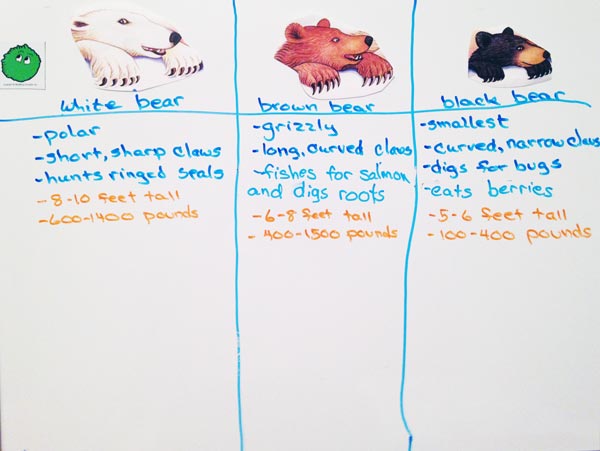 white bear
-polar
-short, sharp claws
-hunts ringed seals
-8-10 feet tall
-600-1400 pounds
brown bear
-grizzly
-long, curved claws
-fishes for salmon
and digs roots
-6-8 feet tall
-400-1500 pounds
black bear
-smallest
-curved, narrow claws
-digs for bugs
-eats berries
-5-6 feet tall
-100-400 pounds